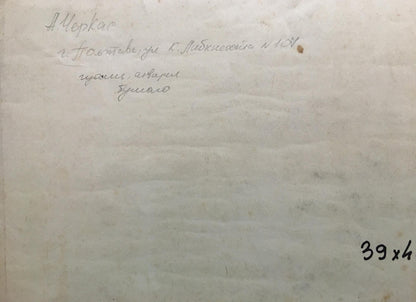 А. Черкас
г. Полтава, ул К. Либкнехта N
гуашь, акварел
бумага
39 x 4